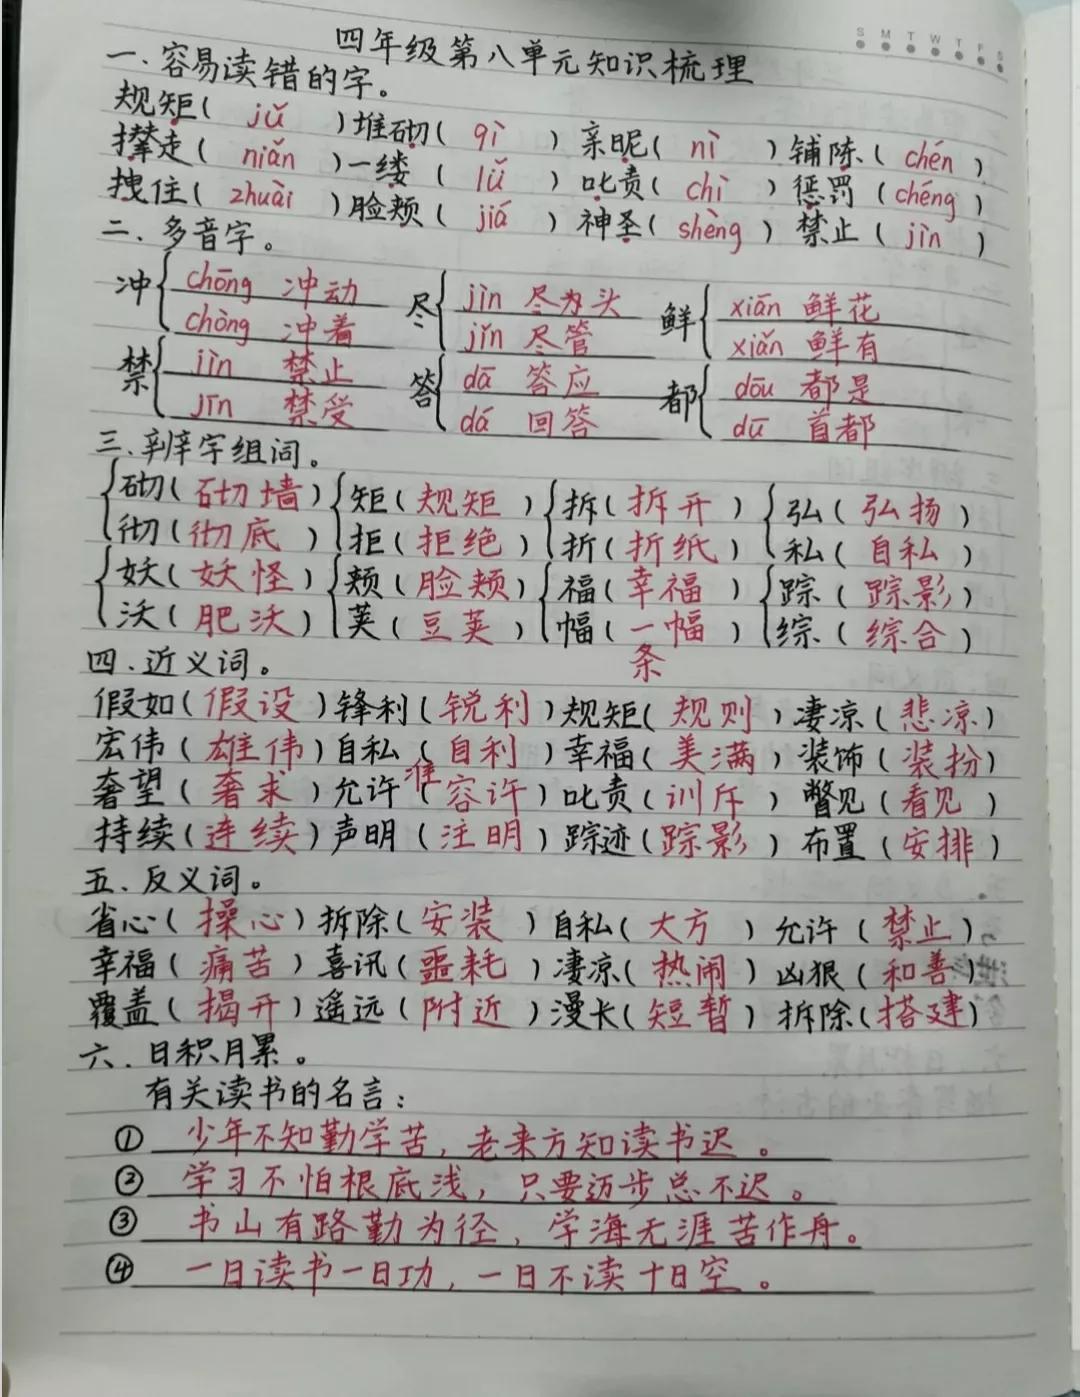 四年级第八单元知识梳理
S M T W T F S
一.容易读错的字。
规矩( jǔ )堆砌( qì )亲昵( nì )铺陈( chén )
撵走( niǎn )一缕( lǚ )叱责( chì )惩罚( chéng )
拽住( zhuài )脸颊( jiá )神圣( shèng )禁止( jìn )
二.多音字。
冲{ chōng 冲动 尽{ jìn 尽力头 鲜{ xiān 鲜花
chòng 冲着 jǐn 尽管 xiǎn 鲜有
禁{ jìn 禁止 答{ dā 答应 都{ dōu 都是
jīn 禁受 dá 回答 dū 首都
三.辨字组词。
{砌(砌墙){矩(规矩){拆(拆开){弘(弘扬)
彻(彻底) 拒(拒绝) 折(折纸) 私(自私)
{妖(妖怪){颊(脸颊){福(幸福){踪(踪影)
沃(肥沃) 荚(豆荚) 幅(一幅) 综(综合)
条
四.近义词。
假如(假设)锋利(锐利)规矩(规则)凄凉(悲凉)
宏伟(雄伟)自私(自利)幸福(美满)装饰(装扮)
奢望(奢求)允许(准容许)叱责(训斥)瞥见(看见)
持续(连续)声明(注明)踪迹(踪影)布置(安排)
五.反义词。
省心(操心)拆除(安装)自私(大方)允许(禁止)
幸福(痛苦)喜讯(噩耗)凄凉(热闹)凶狠(和善)
覆盖(揭开)遥远(附近)漫长(短暂)拆除(搭建)
六.日积月累。
有关读书的名言:
① 少年不知勤学苦,老来方知读书迟。
② 学习不怕根底浅,只要迈步总不迟。
③ 书山有路勤为径,学海无涯苦作舟。
④ 一日读书一日功,一日不读十日空。